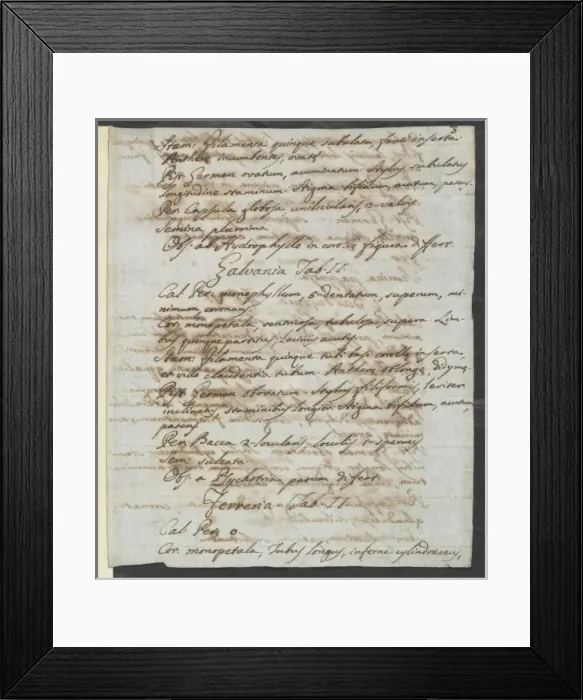 3
Stam: Filamenta quinque subulata, fauci inserta
Antheræ incumbentes, ovatæ
Pist: Germen ovatum, acuminatum. Stylus subulatus
longitudine staminum. Stigma bifidum, acutum, patens.
Per. Capsula globosa, unilocularis, 2-valvis
Semina plurima
Obs. ab Hydrophyllo in corollæ figura differt.
Galvania Tab. II.
Cal. Per: monophyllum, 5-dentatum, superum, mi-
nimum, coronans.
Cor. monopetala, ventricosa, tubulosa, supera. Lim-
bus quinquepartitus, laciniis acutis.
Stam: Filamenta quinque tubi basi corollæ inserta,
et villo claudentia tubum. Antheræ oblongæ, didymæ.
Pist: Germen obovatum. Stylus filiformis, leviter
inclinatus, staminibus longior. Stigma bifidum, acutum,
patens.
Per. Bacca 2-locularis, loculis 1-spermis
Sem: sulcata
Obs. a Psychotria parum differt.
Ferreria Tab. II.
Cal. Per. 0
Cor. monopetala, Tubus longus, inferne cylindraceus,